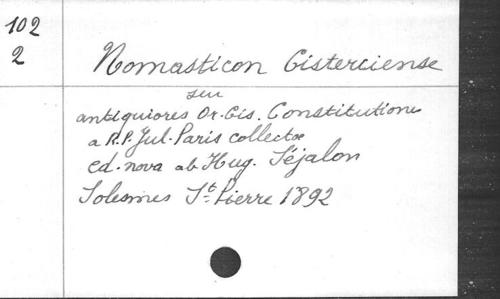 102
2
Nomasticon Cisterciense
seu
antiquiores Or. Cis. Constitutione
a R.P. Jul. Paris collectæ
ed. nova ab Hug. Séjalon
Solesmes St. Pierre 1892